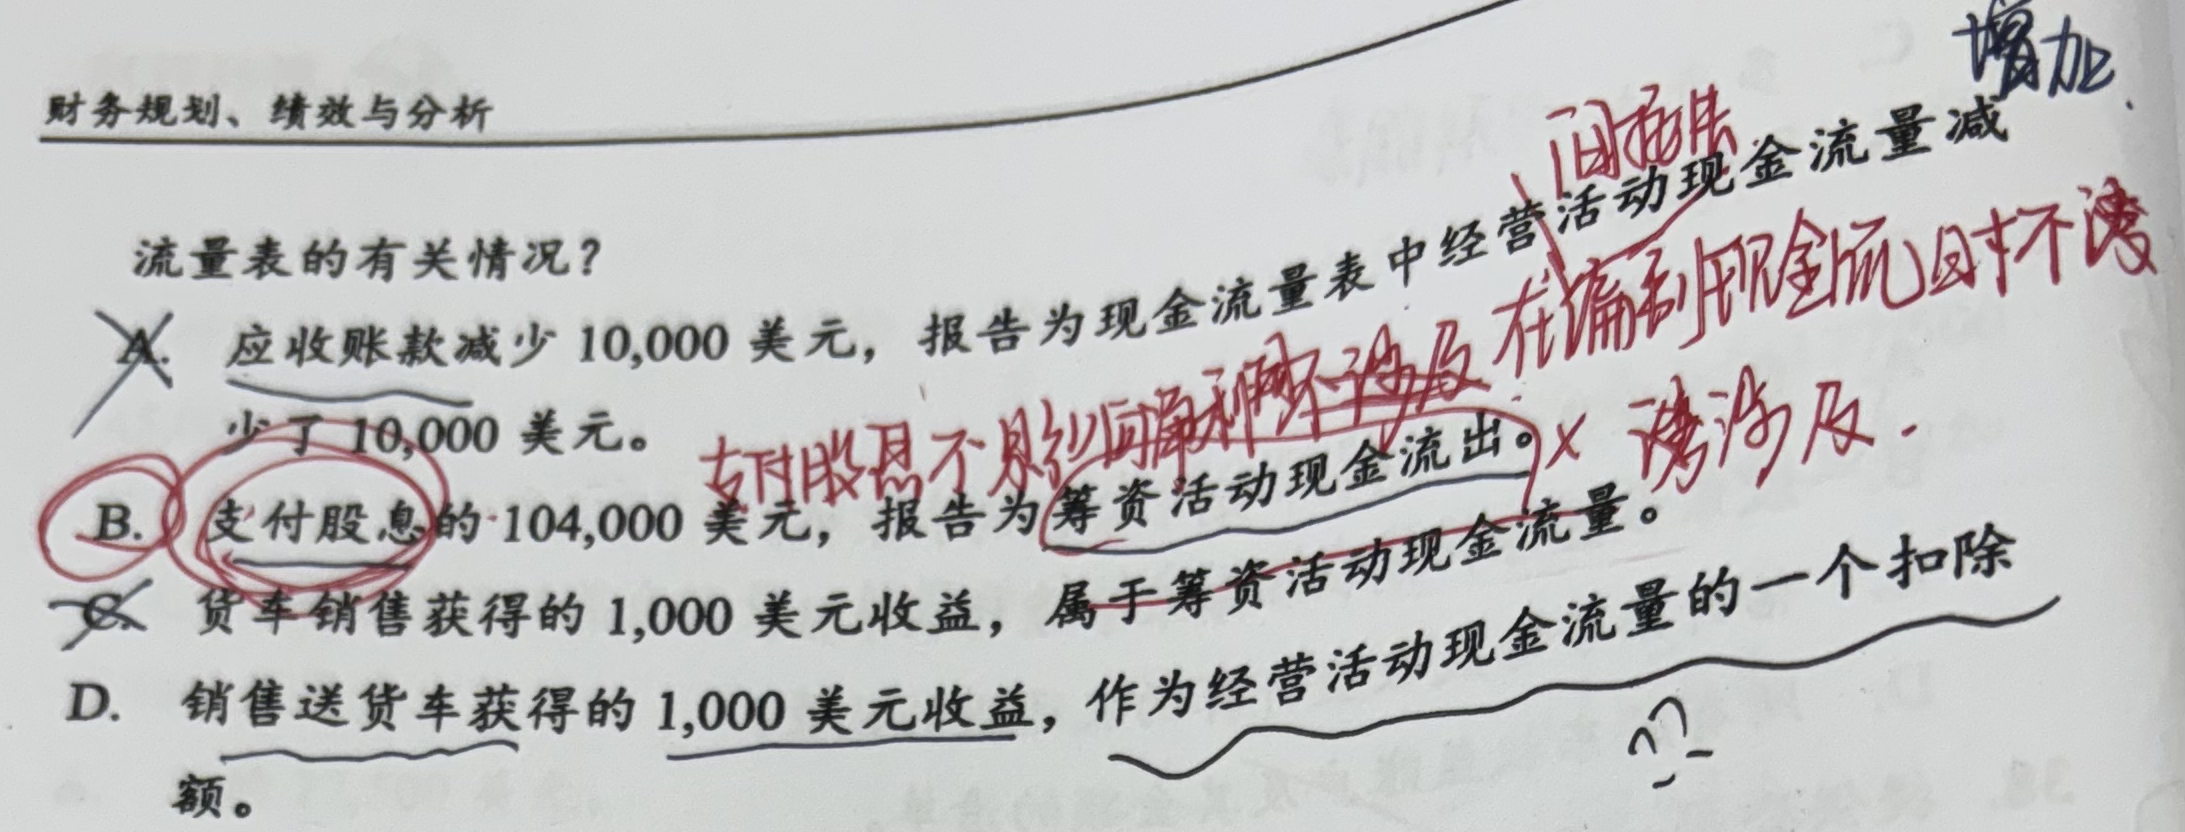 增加.
财务规划、绩效与分析
间接法
流量表的有关情况?
A. 应收账款减少 10,000 美元，报告为现金流量表中经营活动现金流量减
少了 10,000 美元。
在编制现金流时不涉及
支付股息不影响净利润
B. 支付股息的 104,000 美元，报告为筹资活动现金流出。
C. 货车销售获得的 1,000 美元收益，属于筹资活动现金流量。
D. 销售送货车获得的 1,000 美元收益，作为经营活动现金流量的一个扣除
额。
??